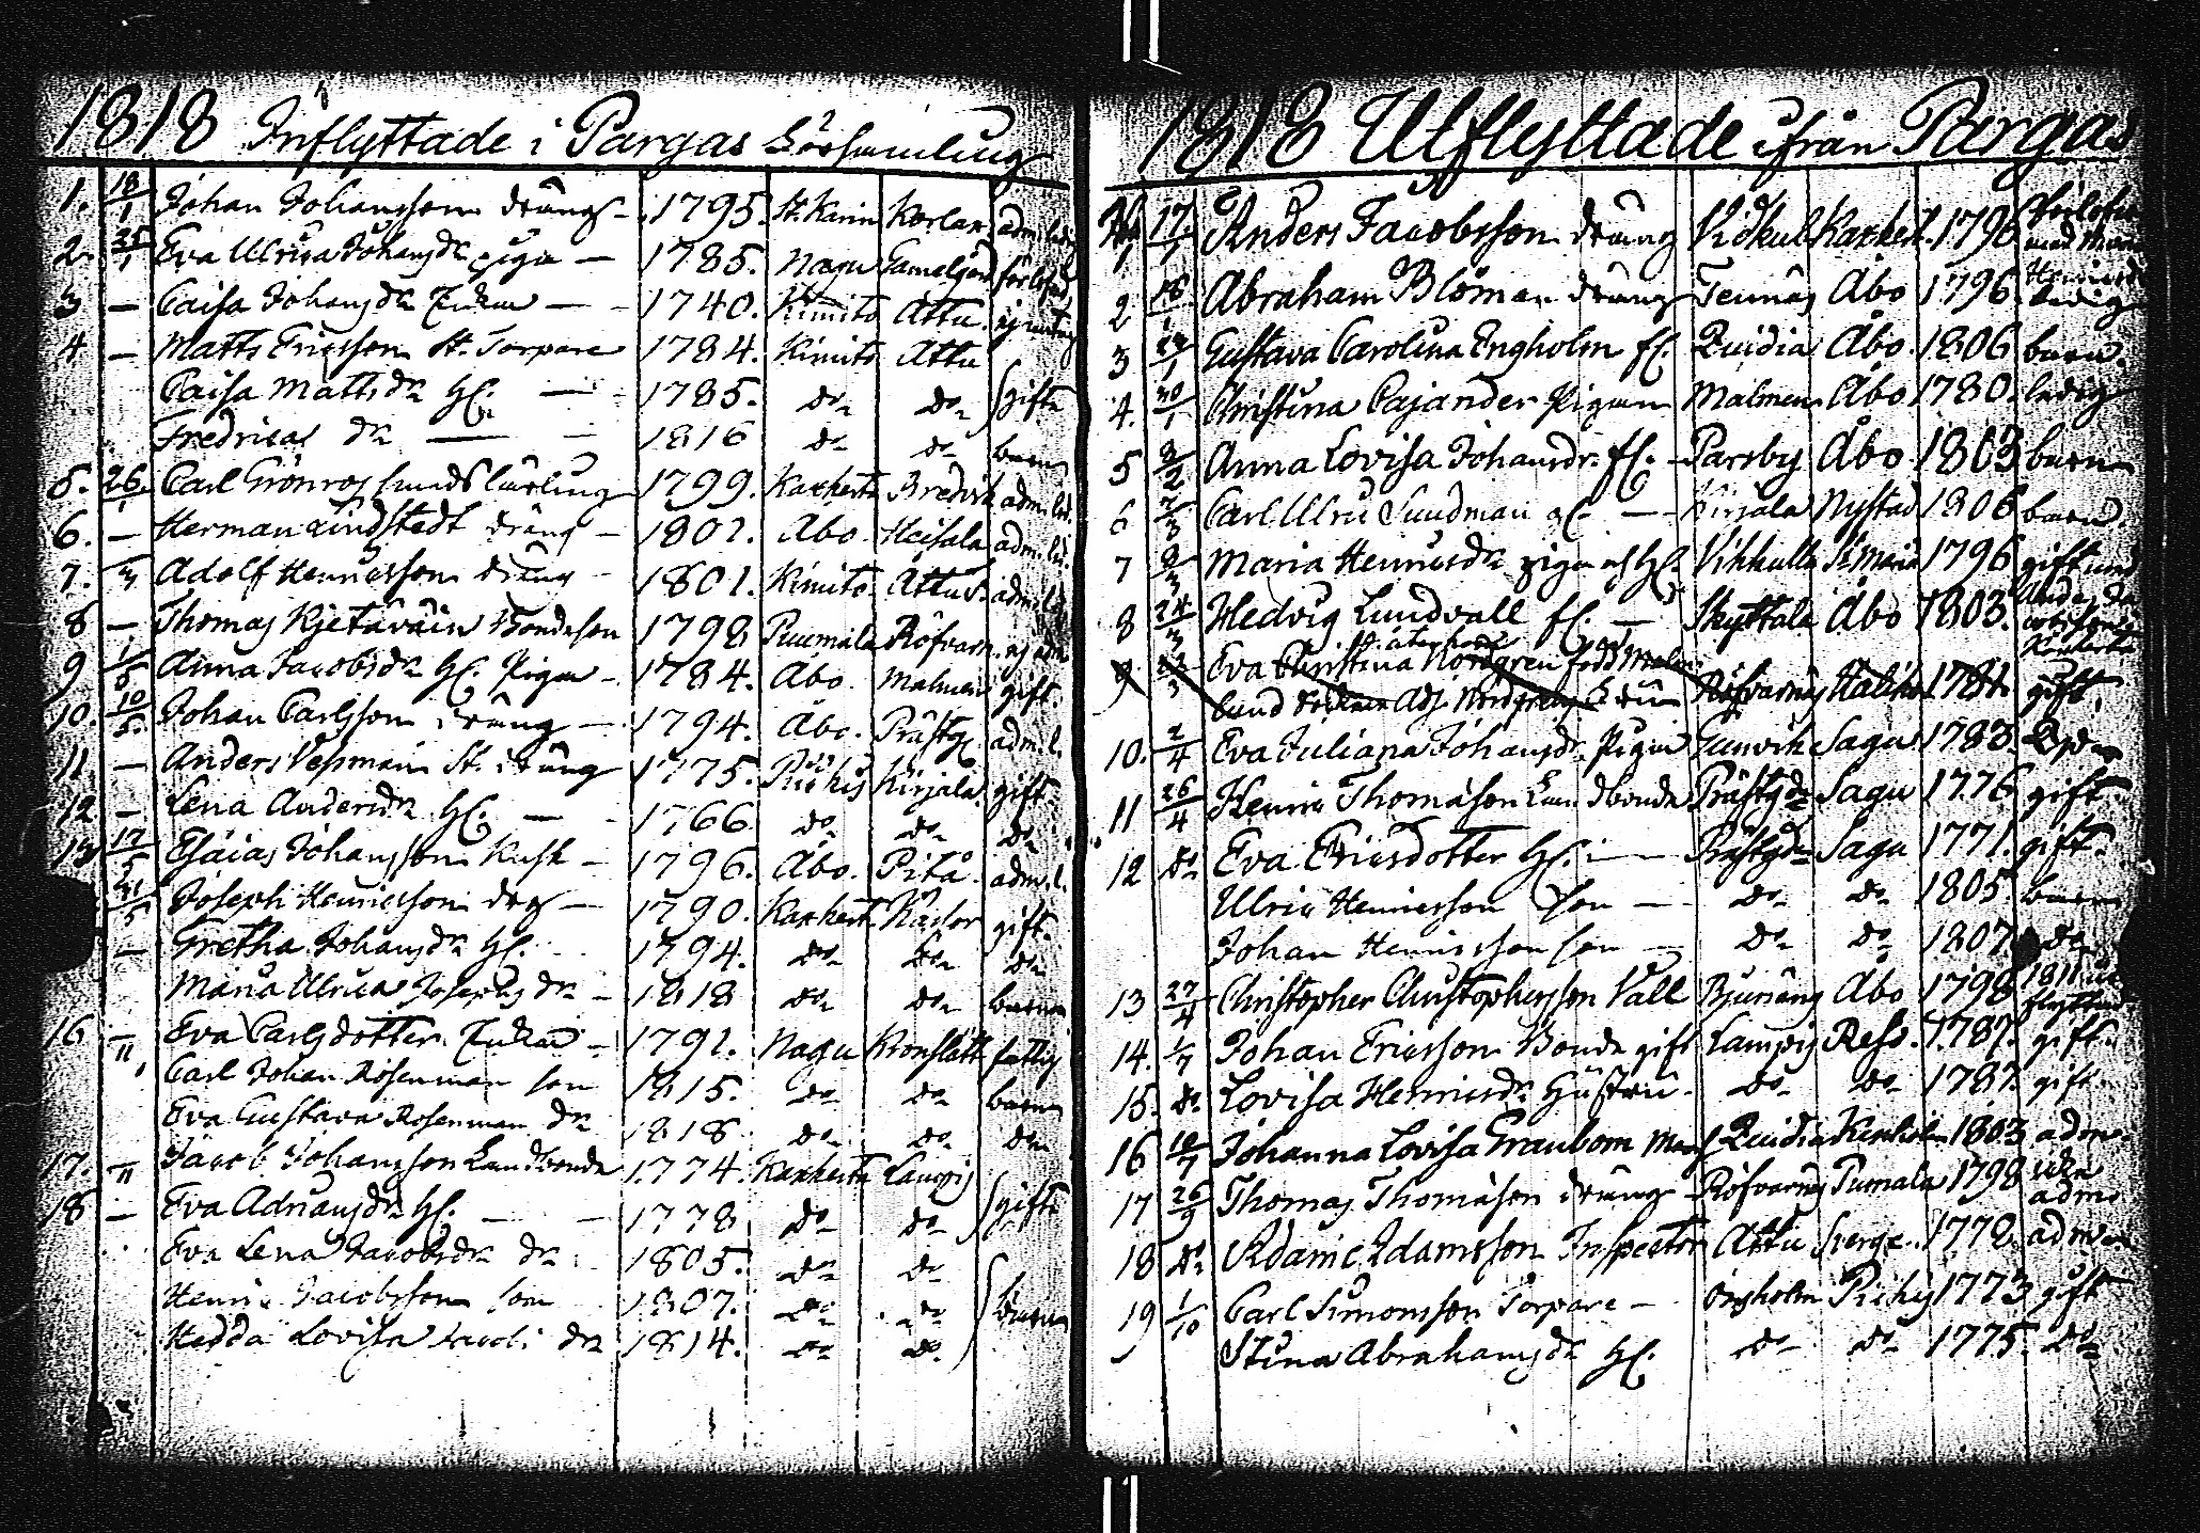 1818 Inflyttade i Pargas
1. 18/1 Johan Johansson dräng – 1795. St. Karin Korlax adm. ledig
2. 25/1 Eva Ulrica Johansdr piga – 1785. Nagu Gamelgård förlofad
3 – Caisa Johansdr Enka – 1740. Kimito Attu.
4 – Matts Ericsson St. Torpare 1784. Kimito Attu
Caisa Mattsdr H. – 1785. do do gifta
Fredrica dr – 1816 do do barn
5. 26/1 Carl Grönros lärling 1799. Karherta Bredvik adm. led.
6. – Herman Lindstedt dräng – 1801. Abo Heisala adm. led.
7. Adolf Henricsson dräng – 1801. Kimito. Attu. adm. led.
8 – Thomas Kjetäväin Bondeson 1798 Puumala Röfvarn. ej adm
9 1/5 Anna Jacobsdr H. Piga – 1784. Abo. Malmen gift.
10. 10/5. Johan Carlsson dräng – 1794. Åbo. Prästg. adm. l.
11 – Anders Vesman St. dräng 1775. Pikis Kirjala. gift.
12 – Lena Andersdr H. – 1766 do do do
13 17/5 Esaias Johansson Kusk – 1796. Åbo. Pitå. adm. l.
21/5 Joseph Henricsson drg – 1790. Karhert. gift.
– Gretha Johansdr H. 1794. do do do
Maria Ulrica Josephs dr – 1818 do do barn
16 – Eva Carlsdotter Enka – 1791. Nagu Kronslätt fattig
Carl Johan Rosenman son 1815. do do barn
Eva Gustava Rosenman dr 1818 do do do
17. Jacob Johansson Landbonde 1774. Karherta Lampis
18 – Eva Adriansdr H. – 1778 do do gifta
Eva Lena Jacobsdr dr 1805. do do
Henric Jacobsson son 1807. do do barn
Hedda Lovisa Jacobs dr 1814. do do
1818 Utflyttade ifrån Pargas
17/1 Anders Jacobsson dräng Vidkul Karhert. 1796
2 Abraham Bloman dräng Tennäs Åbo 1796. ledig
3 24/1 Gustava Carolina Engholm fl. Quidia Åbo. 1806 barn.
4. 30/1 Christina Cajander Pigan Malmen Åbo 1780. ledig
5 2/2 Anna Lovisa Johansdr. fl. – Parsby Åbo 1803 barn
6 2/3 Carl Ulric Sundman – Kirjala Nystad 1806 barn.
7 9/3 Maria Henricsdr piga Vikhulla St. Maria 1796 gift med
8 24/3 Hedvig Lundvall fl. – Skyttala Åbo 1803.
9 Eva Christina Nordgren född Malm-
lund Adj. Nordgrens Fru Röfvarnäs Haliko 1781. gift.
10. 2/4 Eva Juliana Johansdr. Piga Gunvik Sagu 1783.
11 26/4 Henric Thomasson Landbonde Prästgdn Sagu 1776 gift
12 do Eva Ericsdotter H. – Prästgdn Sagu 1771. gift.
Ulric Henricsson son – do do 1805 barn
Johan Henricsson son – do do 1807. do
13 27/4 Christopher Christophersson Vall Bjursäng Abo 1798
14. 1/7 Johan Ericsson Bonde gift Lampis Reso. 1787. gift.
15. do Lovisa Henricsdr Hustru – do do 1787. gift.
16 10/7 Johanna Lovisa Granbom Quidia Kimito 1803 adm.
17 26/9 Thomas Thomasson dräng – Röfvarnäs Pumala 1798 icke adm.
18 do Adam Adamsson Inspector Attu Sverge. 1772 adm
19 1/10 Carl Simonsson Torpare – Ongholm Pikis 1773 gift
Stina Abrahamsdr H. do do 1775. do